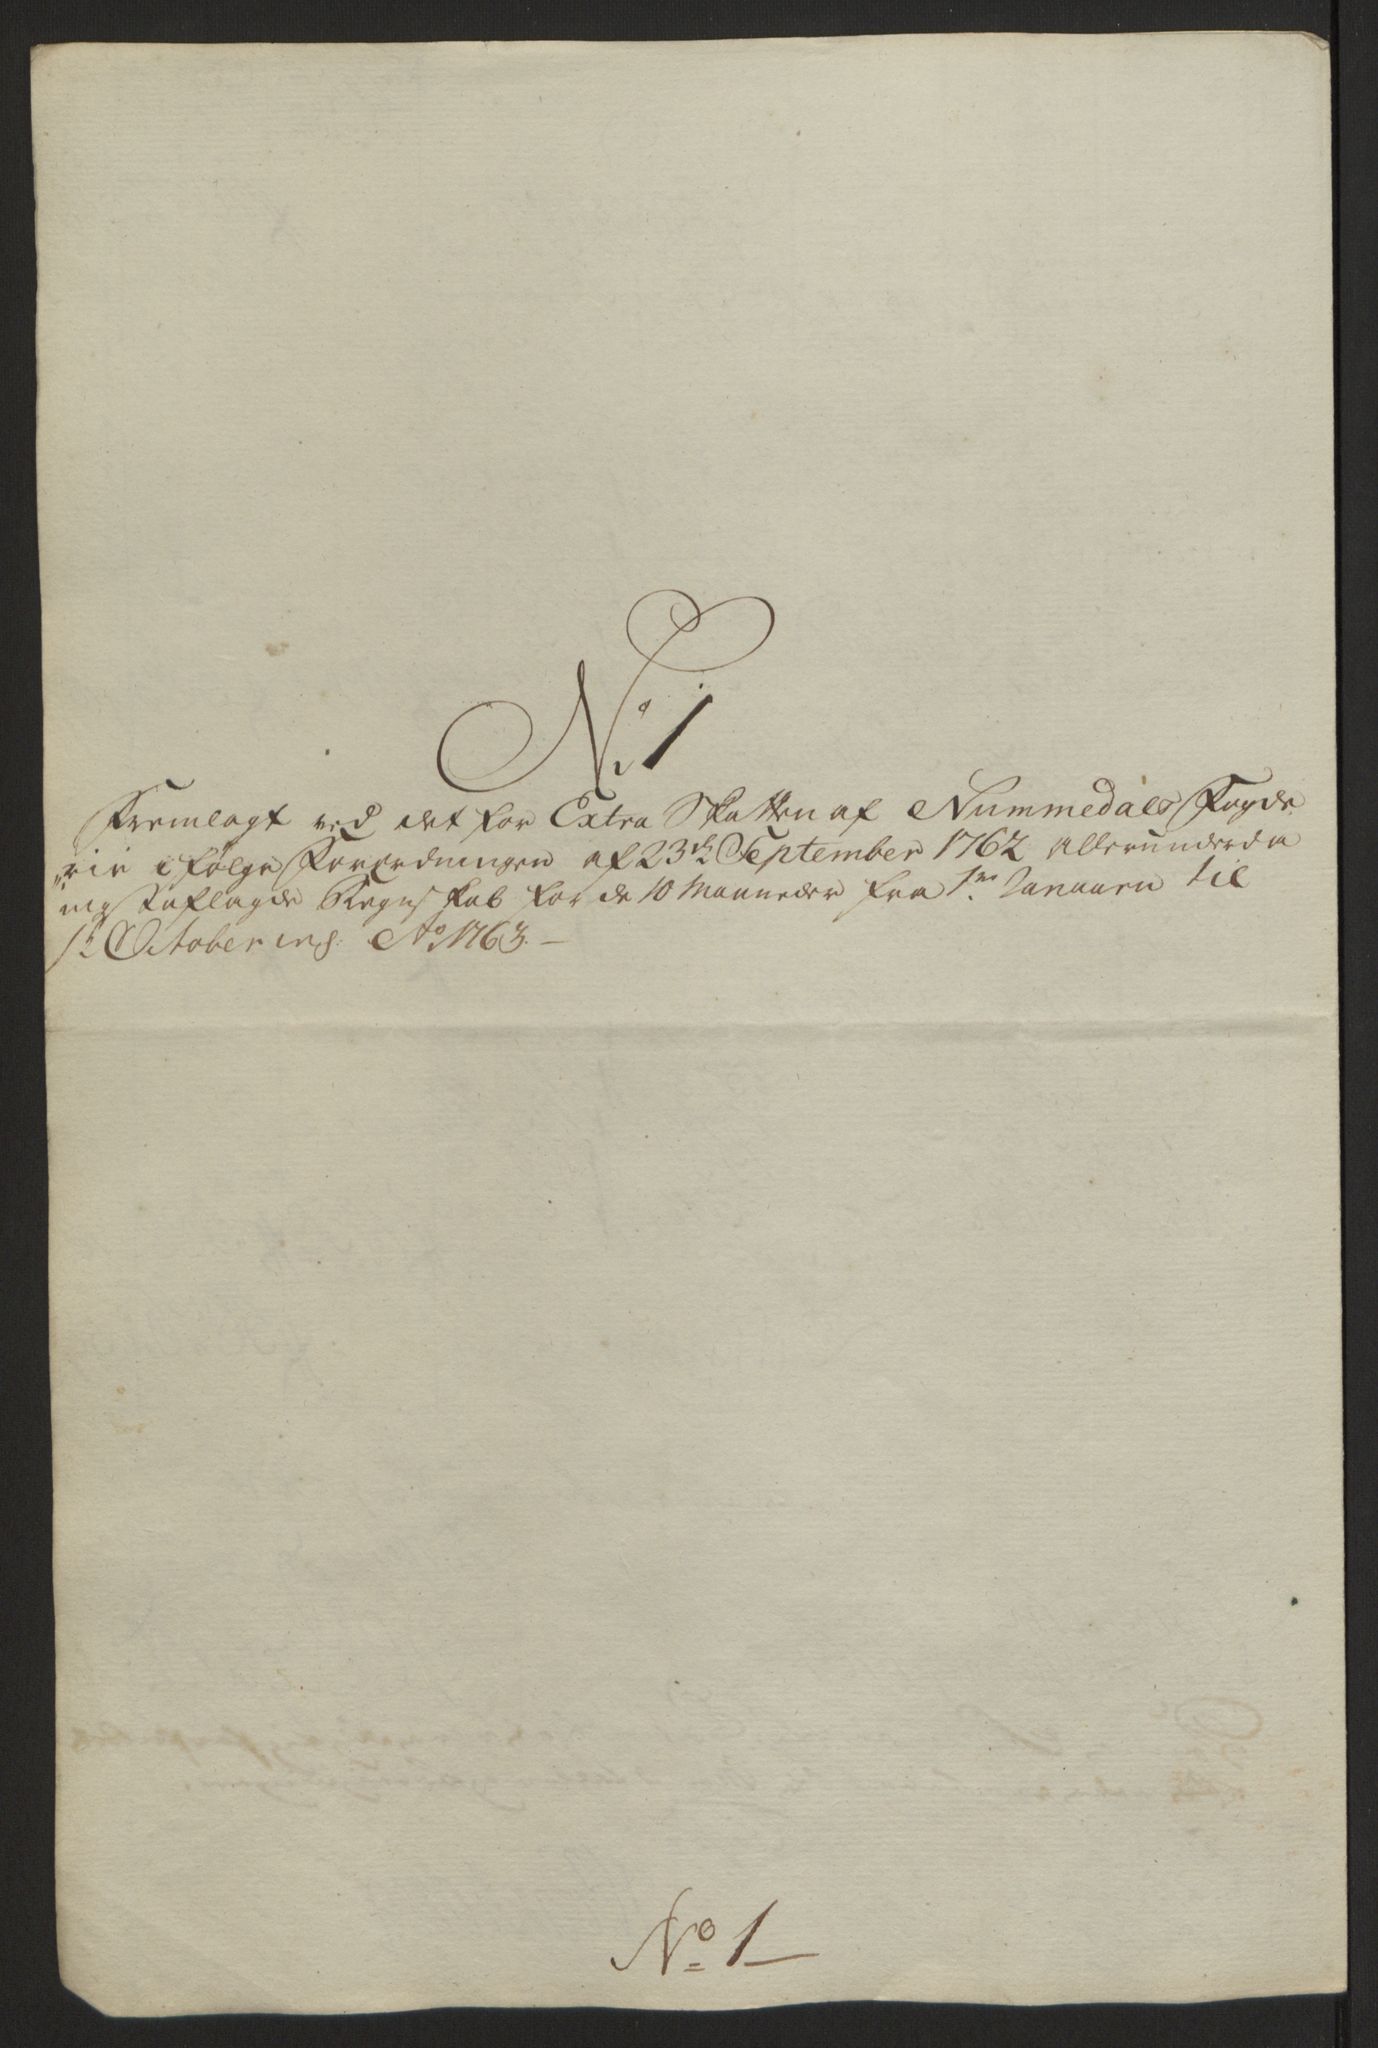 No 1
Fremlagt ved det for Extra Skatten af Nummedals Fogde
„rie i følge Forordningen af 23de September 1762 allerunderda
nigst aflagde Regnskab for de 10 Maaneder fra 1ma Januarii til
October inc: Ao 1763.—
No 1